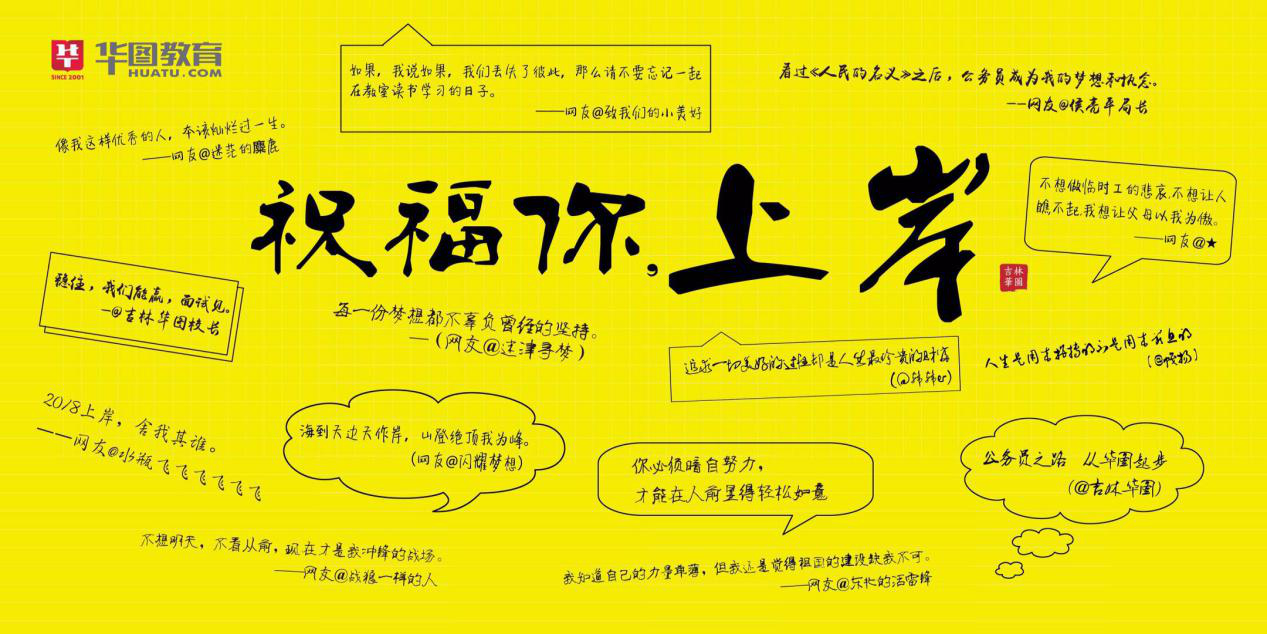 HT
SINCE 2001
华图教育
HUATU.COM
如果，我说如果，我们丢失了彼此，那么请不要忘记一起
在教室读书学习的日子。
——网友@致我们的小美好
看过《人民的名义》之后，公务员成为我的梦想和执念。
——网友@侯亮平局长
像我这样优秀的人，本该灿烂过一生。
——网友@迷茫的麋鹿
祝福你,上岸
吉林
华图
不想做临时工的悲哀,不想让人
瞧不起,我想让父母以我为傲。
——网友@★
稳住，我们能赢，面试见。
—@吉林华图校长
每一份梦想都不辜负曾经的坚持。
—（网友@迷津寻梦）
追求一切美好的过程却是人生最珍贵的财富
(@韩韩er)
人生是用来
的
2018上岸，舍我其谁。
——网友@水瓶飞飞飞飞飞飞飞
海到天边天作岸，山登绝顶我为峰。
(网友@闪耀梦想)
你必须暗自努力，
才能在人前显得轻松如意
公务员之路 从华图起步
(@吉林华图)
不想明天，不看从前，现在才是我冲锋的战场。
——网友@战狼一样的人
我知道自己的力量单薄，但我还是觉得祖国的建设缺我不可。
——网友@东北的活雷锋